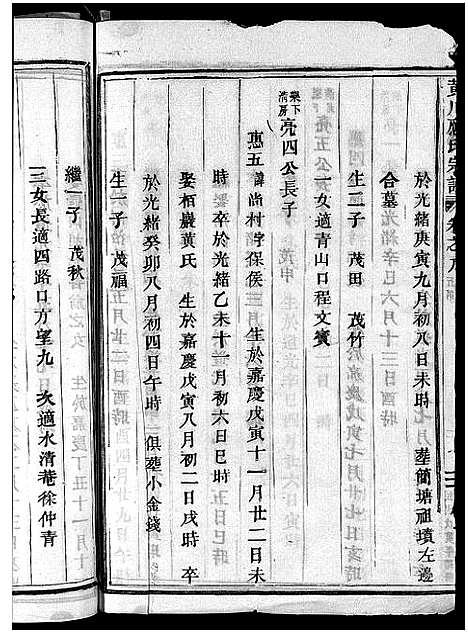 於光緒庚寅九月初八日未時 葬簡塘祖墳左邊
合墓
生二子 茂田 茂竹
一女適青山口程文賓
樂下
清房
亮四公長子
惠五 諱尚村字保侯 生於嘉慶戊寅十一月廿二日未
時 卒於光緒乙未十一月初六日巳時
娶栢嚴黃氏 生於嘉慶戊寅八月初二日戌時 卒
於光緒癸卯八月初四日午時 俱葬小金錢
生一子 茂福
繼一子 茂秋
三女長適四路口方望九 次適水清菴徐仲青